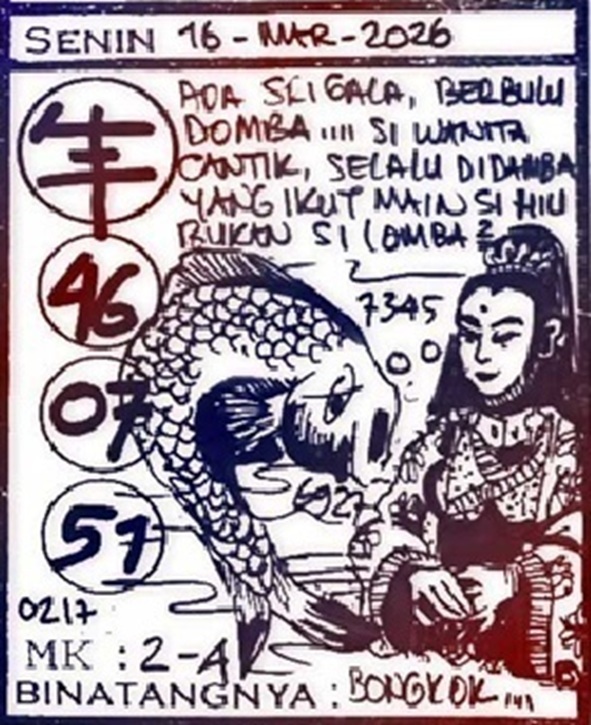 SENIN 16 - MAR - 2026
ADA SRIGALA, BERBULU
DOMBA .... SI WANITA
CANTIK, SELALU DIDAMBA
YANG IKUT MAIN SI HIU
BUKAN SI LOMBA 2
生
46
7345
07
6927
57
0217
MK : 2-4
BINATANGNYA : BONGKOK ....